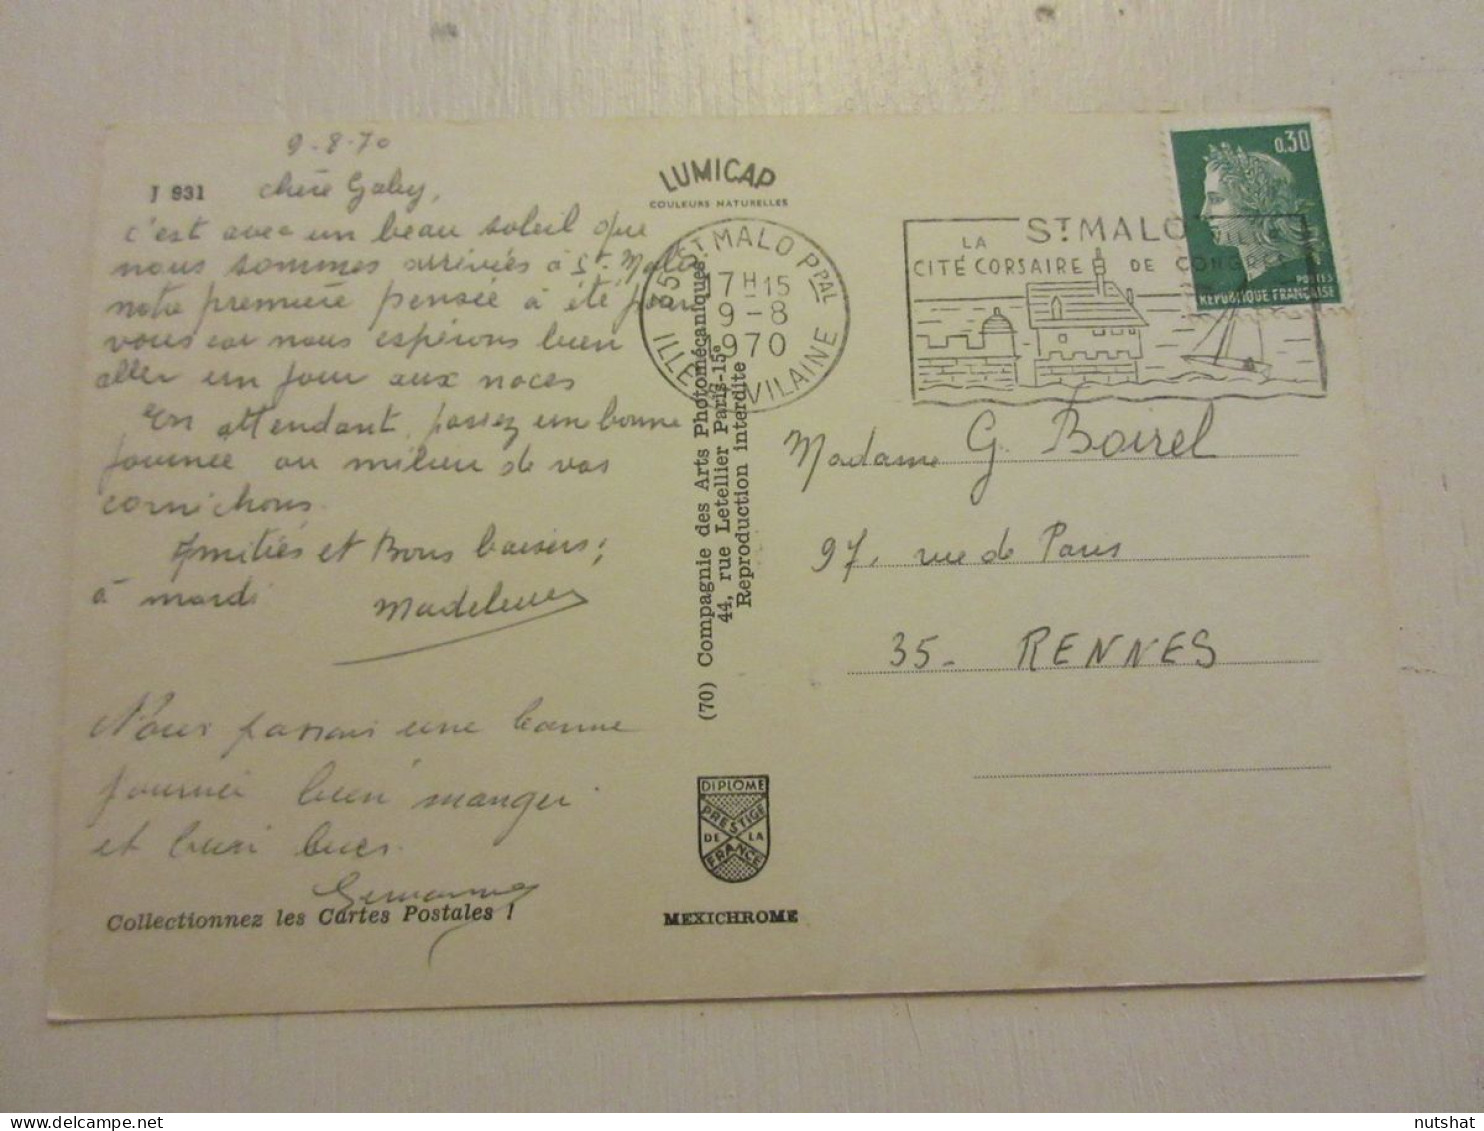 9-8-70
J 931
chère Gaby,
c'est avec un beau soleil que
nous sommes arrivés à St-Malo
notre première pensée à été pour
vous car nous espérons bien
aller un jour aux noces
En attendant, passez une bonne
journée au milieu de vos
cornichons.
Amitiés et Bons baisers,
à mardi
Madeleine
Nous passons une bonne
journée bien manger
et bien bues.
Collectionnez les Cartes Postales !
LUMICAP
COULEURS NATURELLES
(70) Compagnie des Arts Photomécaniques
44, rue Letellier Paris-15e
Reproduction interdite
DIPLOME
PRESTIGE
DE LA
FRANCE
MEXICHROME
35 ST MALO PPAL
17H15
9-8
1970
ILLE VILAINE
ST MALO
LA
CITÉ CORSAIRE
VILLE
DE CONGRES
0,30
POSTES
REPUBLIQUE FRANÇAISE
Madame G. Boirel
97, rue de Paris
35- RENNES
nutshat